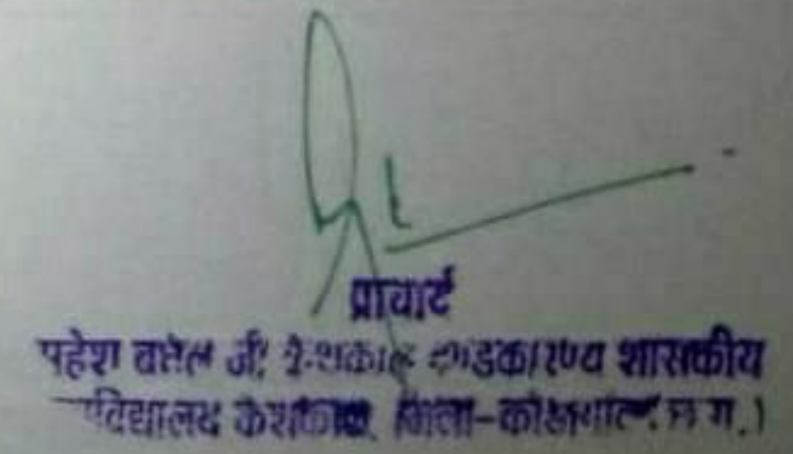 प्राचार्य
महेश बघेल जी, केशकाल दण्डकारण्य शासकीय
विद्यालय केशकाल, जिला-कोण्डागांव छ.ग.)